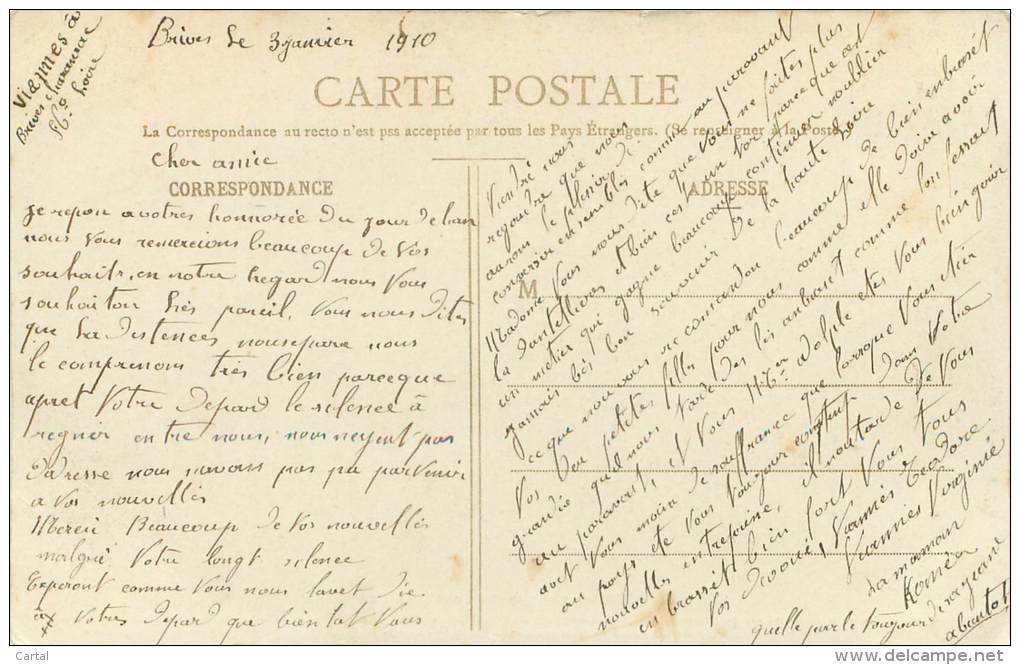 Viannes à
Brives charansac
Hte Loire
Brives Le 3 janvier 1910
CARTE POSTALE
La Correspondance au recto n'est pas acceptée par tous les Pays Étrangers. (Se renseigner à la Poste)
cher amie
CORRESPONDANCE
ADRESSE
M
je repon a votres honnorée du jour de lan
nous vous remercions beaucoup de vos
souhaits, en notre regard nous vous
souhaiton très pareil, vous nous dites
que La distences nousepare nous
le comprenons très bien parceque
apret votre depard le silence à
regner entre nous, nous neyent pas
dadresse nous navons pas pu parvenir
a vos nouvellés
Mercii Beaucoup de vos nouvellés
malgré votre longt silence
Experont comme vous nous lavet die
à votres depard que bientot vous
viendré nous
rejoindre que nous
aurons le plaisir de
conversér ensemblés comme au paravant
Madame vous nous dite que vous ne faites plus
la dantellivres et bien ces un tor parce que cet
un metier qui gagne beaucoup continuer noublier
jamais lés bon souvenir De la haute Loire
ce que nous vous recomandon beaucoup de bien enbrasét
vos deu petites filles pour nous comme elle doive avoir
grandie quil nous tarde des lés anbrasé comme lon fesset
au paravant, et vous Mr adolple etés vous bien guéir
soit vous moin de souffrance que lorsque vous etier
au pays ete vous toujour content dans votre
nouvelles entrepeine, il noutarde De vous
en brassét bien fort vous tous
vos Devoués Viannés Teodore
Viannes Virginie
La maman
Romée
quelle parle toujour du voyeane
a bientot